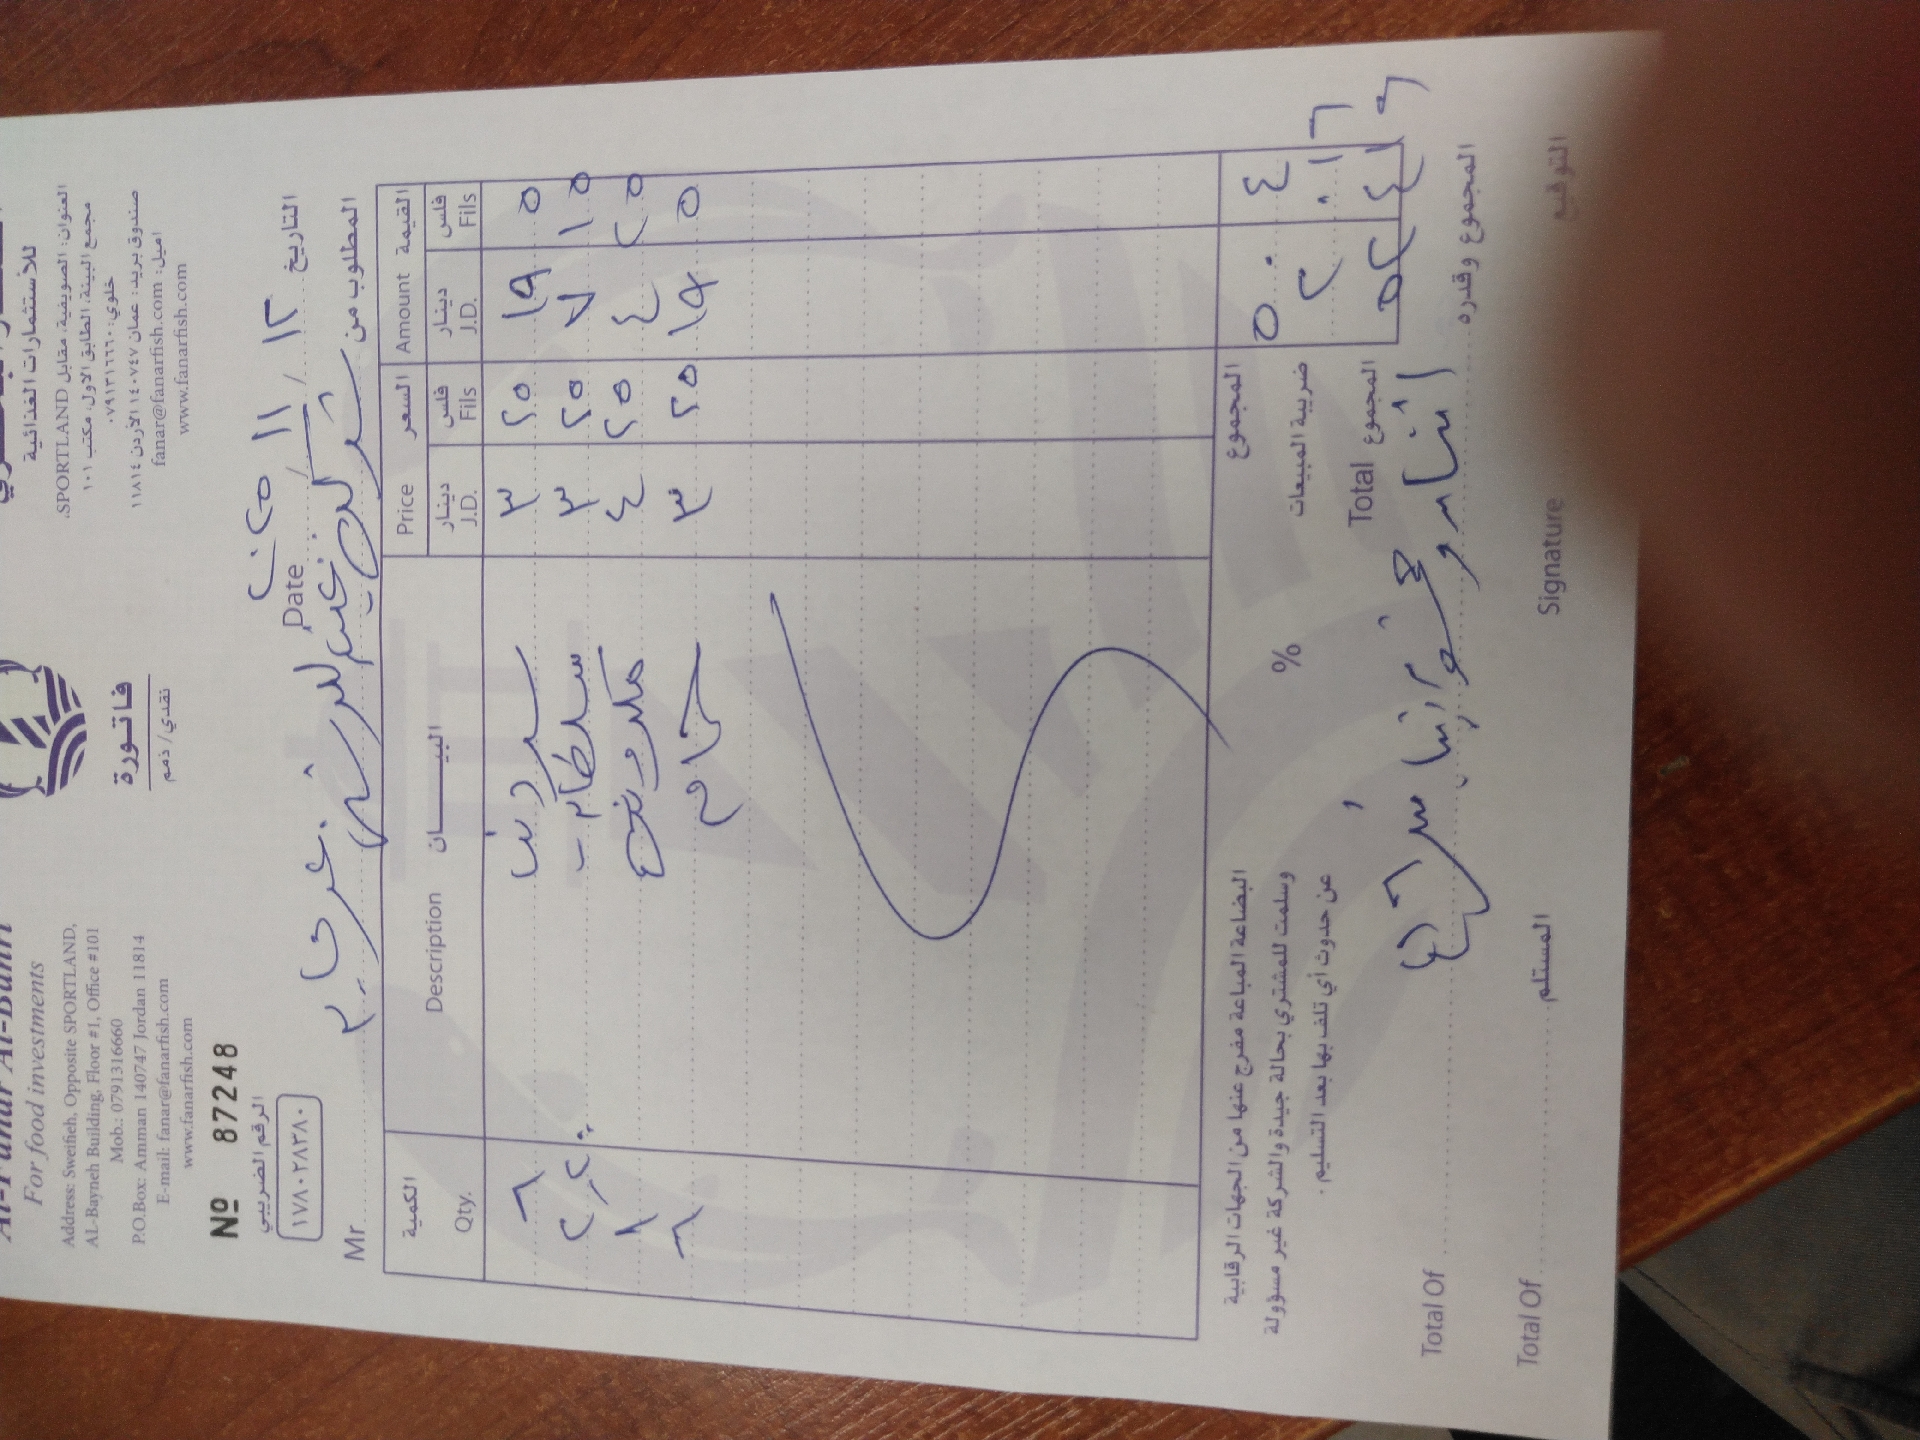 للأستثمارات الغذائية
العنوان: الصويفية، مقابل SPORTLAND.
مجمع البينة، الطابق الاول، مكتب ١٠١
خلوي: ٠٧٩١٣١٦٦٦٠
صندوق بريد: عمان ١٤٠٧٤٧ الأردن ١١٨١٤
اميل: fanar@fanarfish.com
www.fanarfish.com
Al-Fanar Al-Bahri
For food investments
Address: Sweifieh, Opposite SPORTLAND,
AL-Bayneh Building, Floor #1, Office #101
Mob.: 0791316660
P.O.Box: Amman 140747 Jordan 11814
E-mail: fanar@fanarfish.com
www.fanarfish.com
فاتورة
نقدي / ذمم
Nº 87248
الرقم الضريبي
١٧٨٠٢٨٣٨٠
التاريخ ١٢ / ١١ / ٢٠٢٥ Date
المطلوب من Mr
الكمية البيـــــان السعر القيمة
Qty. Description Price Amount
دينار فلس دينار فلس
J.D. Fils J.D. Fils
٦ سردين ٣ ٢٥ ١٩ ٥
٣ ٢٥ ٧ ١٥
١ ٤ ٢٥ ٤ ٢٥
٦ ٣ ٢٥ ١٩ ٥
المجموع ٥٠ ٤
ضريبة المبيعات % ٢ ٠١٦
المجموع Total ٥٢ ٤١٦
البضاعة المباعة مفرج عنها من الجهات الرقابية
وسلمت للمشتري بحالة جيدة والشركة غير مسؤولة
عن حدوث أي تلف بها بعد التسليم.
المجموع وقدره اثنان وخمسون دينار Total Of
المستلم Total Of
التوقيع Signature